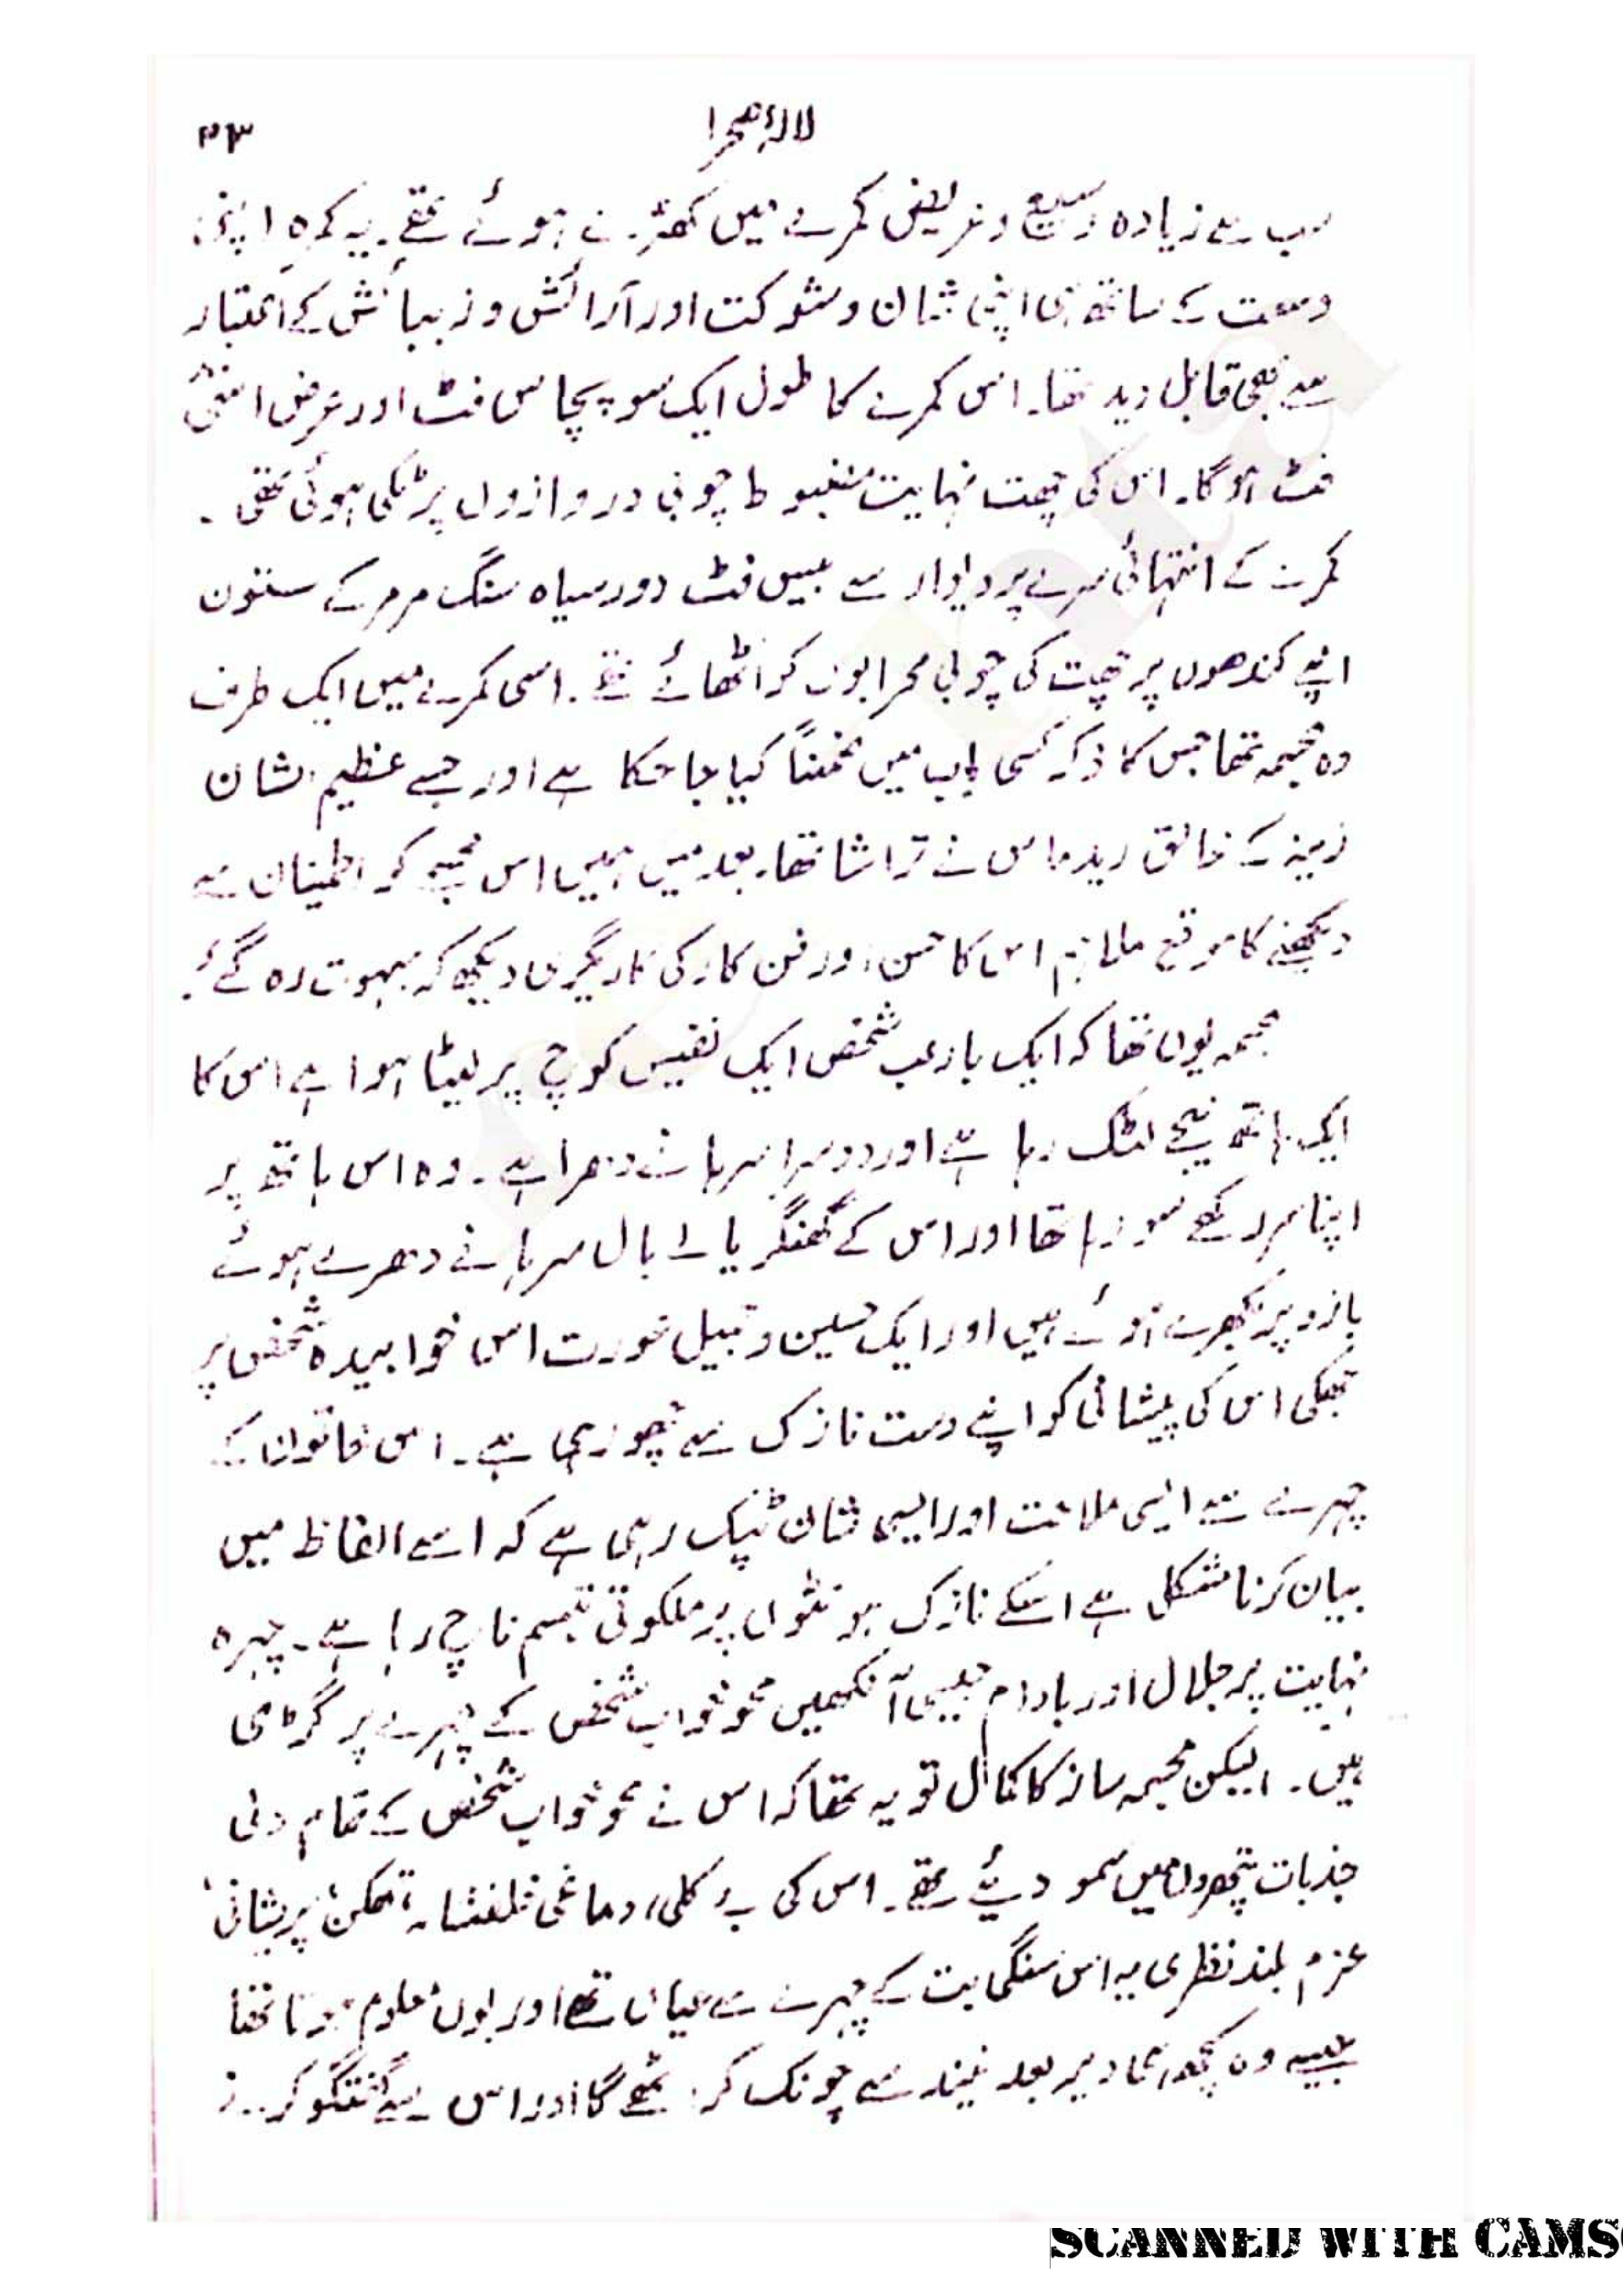 لالۂ صحرا ۳۳
سب سے زیادہ وسیع و عریض کمرے میں کھڑے ہوئے تھے۔ یہ کمرہ اپنی
وسعت کے ساتھ ہی اپنی شان و شوکت اور آرائش و زیبائش کے اعتبار
سے بھی قابل دید تھا۔ اس کمرے کا طول ایک سو پچاس فٹ اور عرض اسّی
فٹ ہوگا۔ اس کی چھت نہایت مضبوط چوبی دروازوں پر ٹکی ہوئی تھی۔
کمرے کے انتہائی سرے پر دیوار سے بیس فٹ دور سیاہ سنگ مرمر کے ستون
اپنے کندھوں پر چھت کی چوبی محرابوں کو اٹھائے تھے۔ اسی کمرے میں ایک طرف
وہ مجسمہ تھا جس کا ذکر کسی باب میں ضمناً کیا جا چکا ہے اور جسے عظیم الشان
زینہ کے خالق ریدماس نے تراشا تھا۔ بعد میں ہمیں اس مجسمے کو اطمینان سے
دیکھنے کا موقع ملا ہم اس کا حسن اور فن کار کی کاریگری دیکھ کہ مبہوت رہ گئے۔
مجسمہ یوں تھا کہ ایک بارعب شخص ایک نفیس کوچ پر لیٹا ہوا ہے اس کا
ایک ہاتھ نیچے لٹک رہا ہے اور دوسرا سرہانے دھرا ہے۔ وہ اس ہاتھ پر
اپنا سر رکھے سو رہا تھا اور اس کے گھنگریالے بال سرہانے دھرے ہوئے
بازو پر بکھرے ہوئے ہیں اور ایک حسین و جمیل عورت اس خوابیدہ شخص پر
جھکی اس کی پیشانی کو اپنے دست نازک سے چھو رہی ہے۔ اس خاتون کے
چہرے سے ایسی ملائمت اور ایسی شان ٹپک رہی ہے کہ اسے الفاظ میں
بیان کرنا مشکل ہے اسکے نازک ہونٹوں پر ملکوتی تبسم ناچ رہا ہے۔ چہرہ
نہایت پر جلال اور بادام جیسی آنکھیں محو خواب شخص کے چہرے پر گڑی
ہیں۔ لیکن مجسمہ ساز کا کمال تو یہ تھا کہ اس نے محو خواب شخص کے تمام دلی
جذبات پتھروں میں سمو دیئے تھے۔ اس کی بے کلی، دماغی خلفشار، تھکن، پریشانی،
عزم بلند نظری یہ اس سنگی بت کے چہرے سے عیاں تھے اور یوں معلوم ہوتا تھا
جیسے وہ کچھ ہی دیر بعد نیند سے چونک کر اٹھے گا اور اس سے گفتگو
SCANNED WITH CAMS